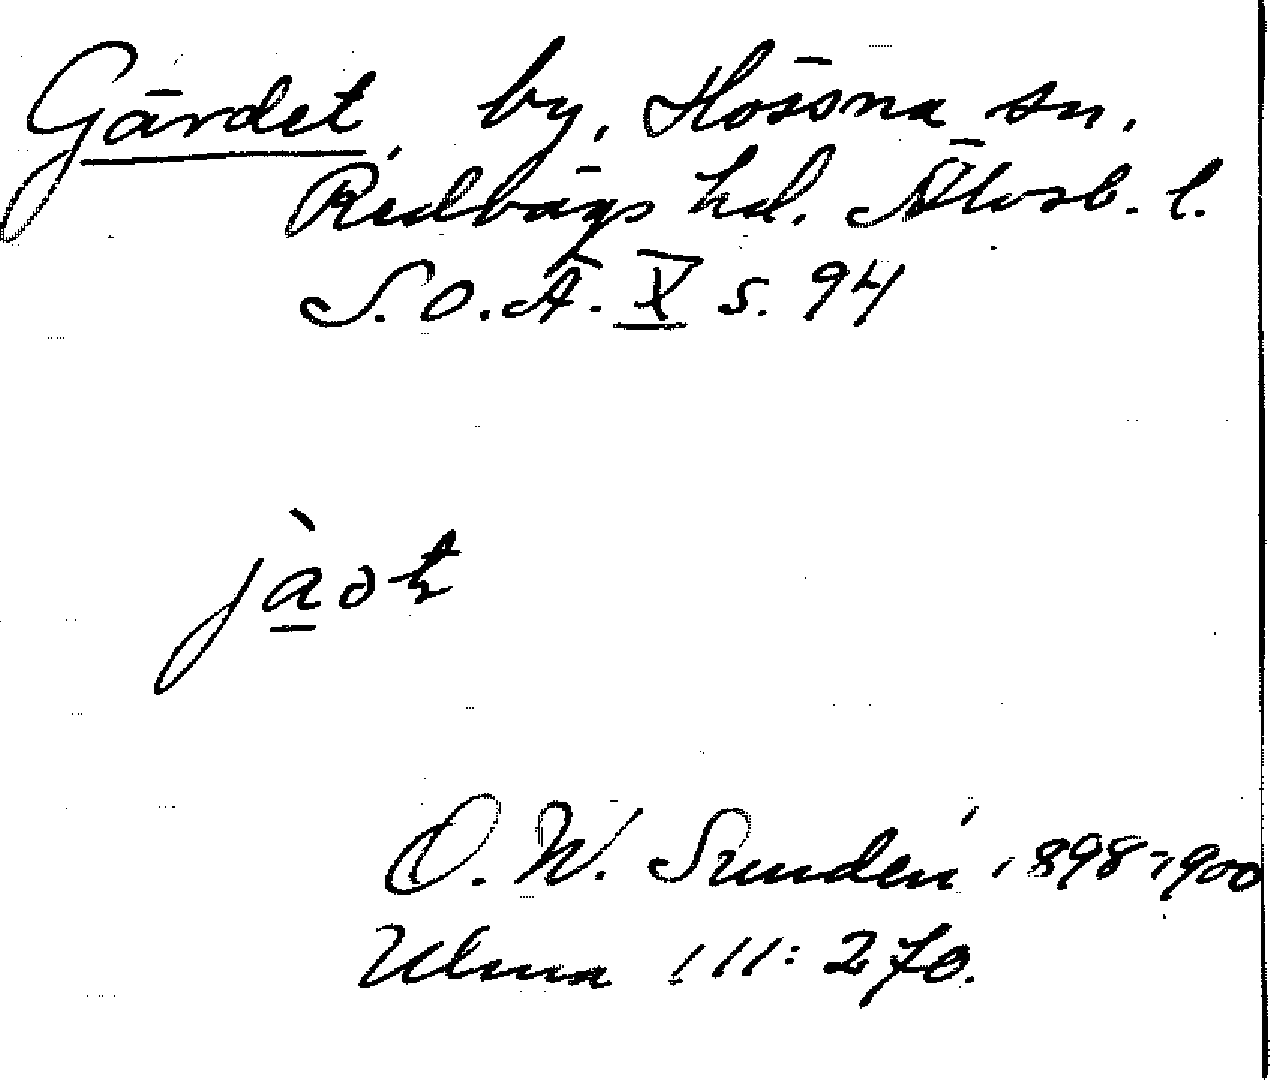 Gärdet, by, Hössna sn.
Redvägs hd. Älvsb. l.
S. O. Ä. X s. 94
O. W. Sundén 1898-1900
Ulma 111:270.